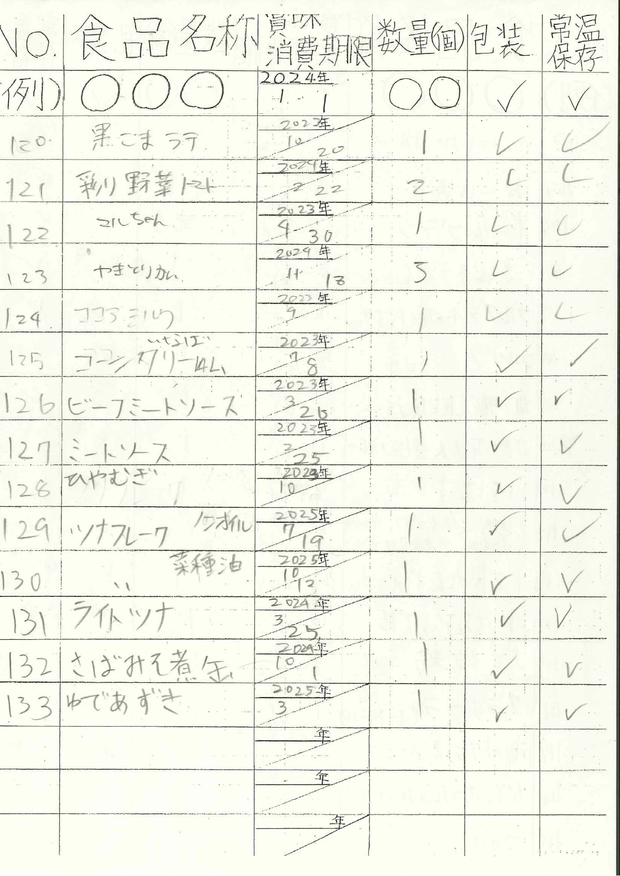 NO. 食品名称 賞味消費期限 数量(個) 包装 常温保存
例) ○○○ 2024年 1 1 ○○ ✓ ✓
120 黒ごまラテ 2023年 10 20 1 ✓ ✓
121 彩り野菜トマト 2024年 2 22 2 ✓ ✓
122 マルちゃん 2023年 4 30 1 ✓ ✓
123 やきとりカレー 11 18 5 ✓ ✓
124 ココアミルク 9 1 ✓ ✓
125 いなば コーンクリーム 2023年 7 8 1 ✓ ✓
126 ビーフミートソース 2023年 3 26 1 ✓ ✓
127 ミートソース 2023年 2 25 1 ✓ ✓
128 ひやむぎ 10 1 ✓ ✓
129 ツナフレーク ノンオイル 2025年 7 19 1 ✓ ✓
130 〃 菜種油 2025年 10 12 1 ✓ ✓
131 ライトツナ 2024年 3 25 1 ✓ ✓
132 さばみそ煮缶 2024年 10 1 1 ✓ ✓
133 ゆであずき 2025年 3 1 ✓ ✓
年
年
年